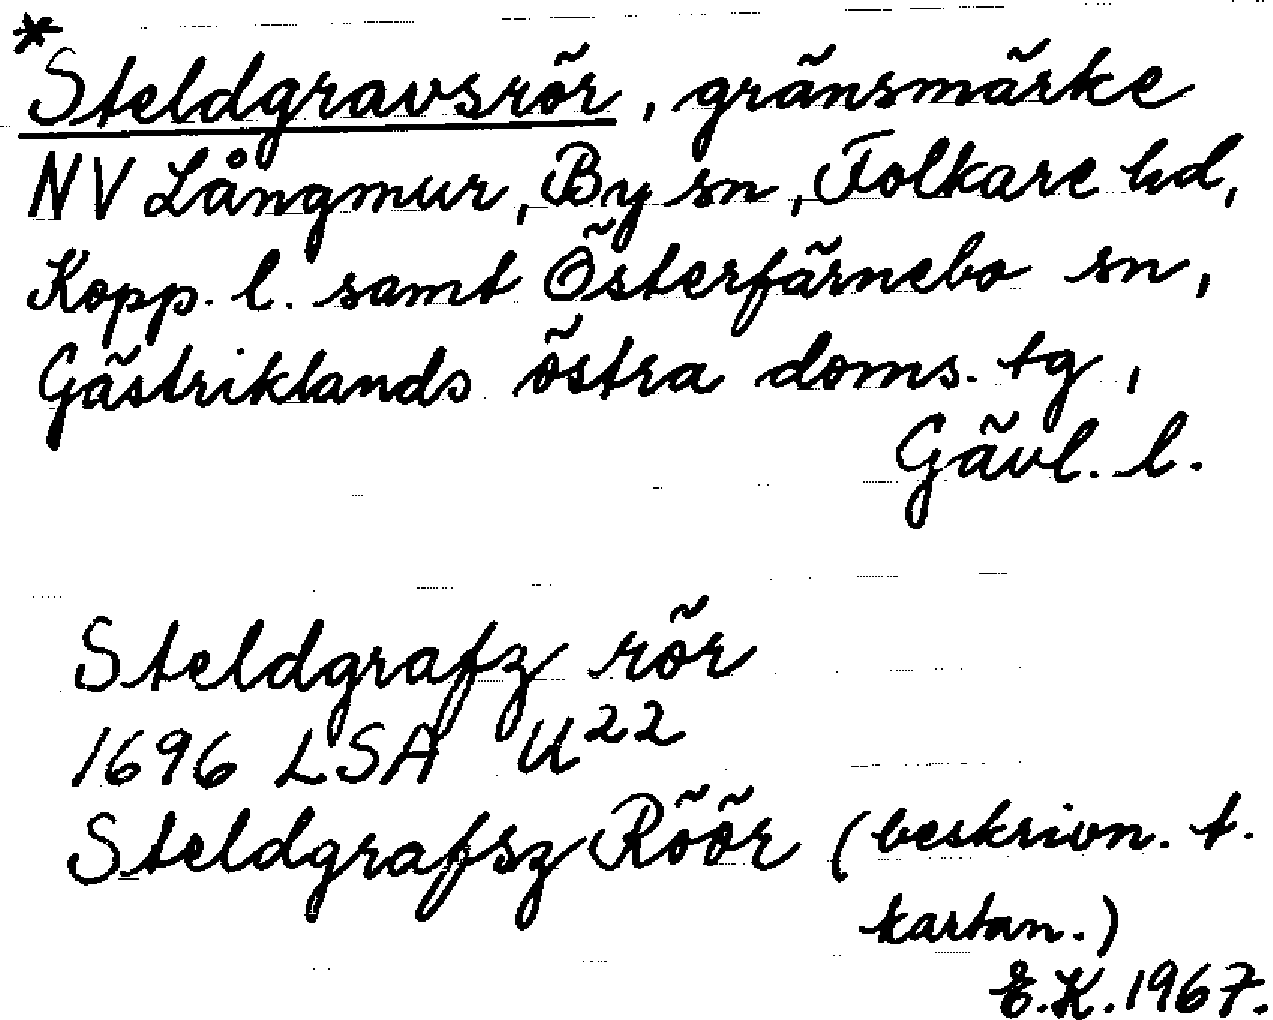 *
Steldgravsrör, gränsmärke
NV Långmur, By sn, Folkare hd,
Kopp. l. samt Österfärnebo sn,
Gästriklands östra doms. tg,
Gävl. l.
Steldgrafz rör
1696 LSA U²²
Steldgrafsz Röör (beskrivn. t.
kartan.)
E.K. 1967.